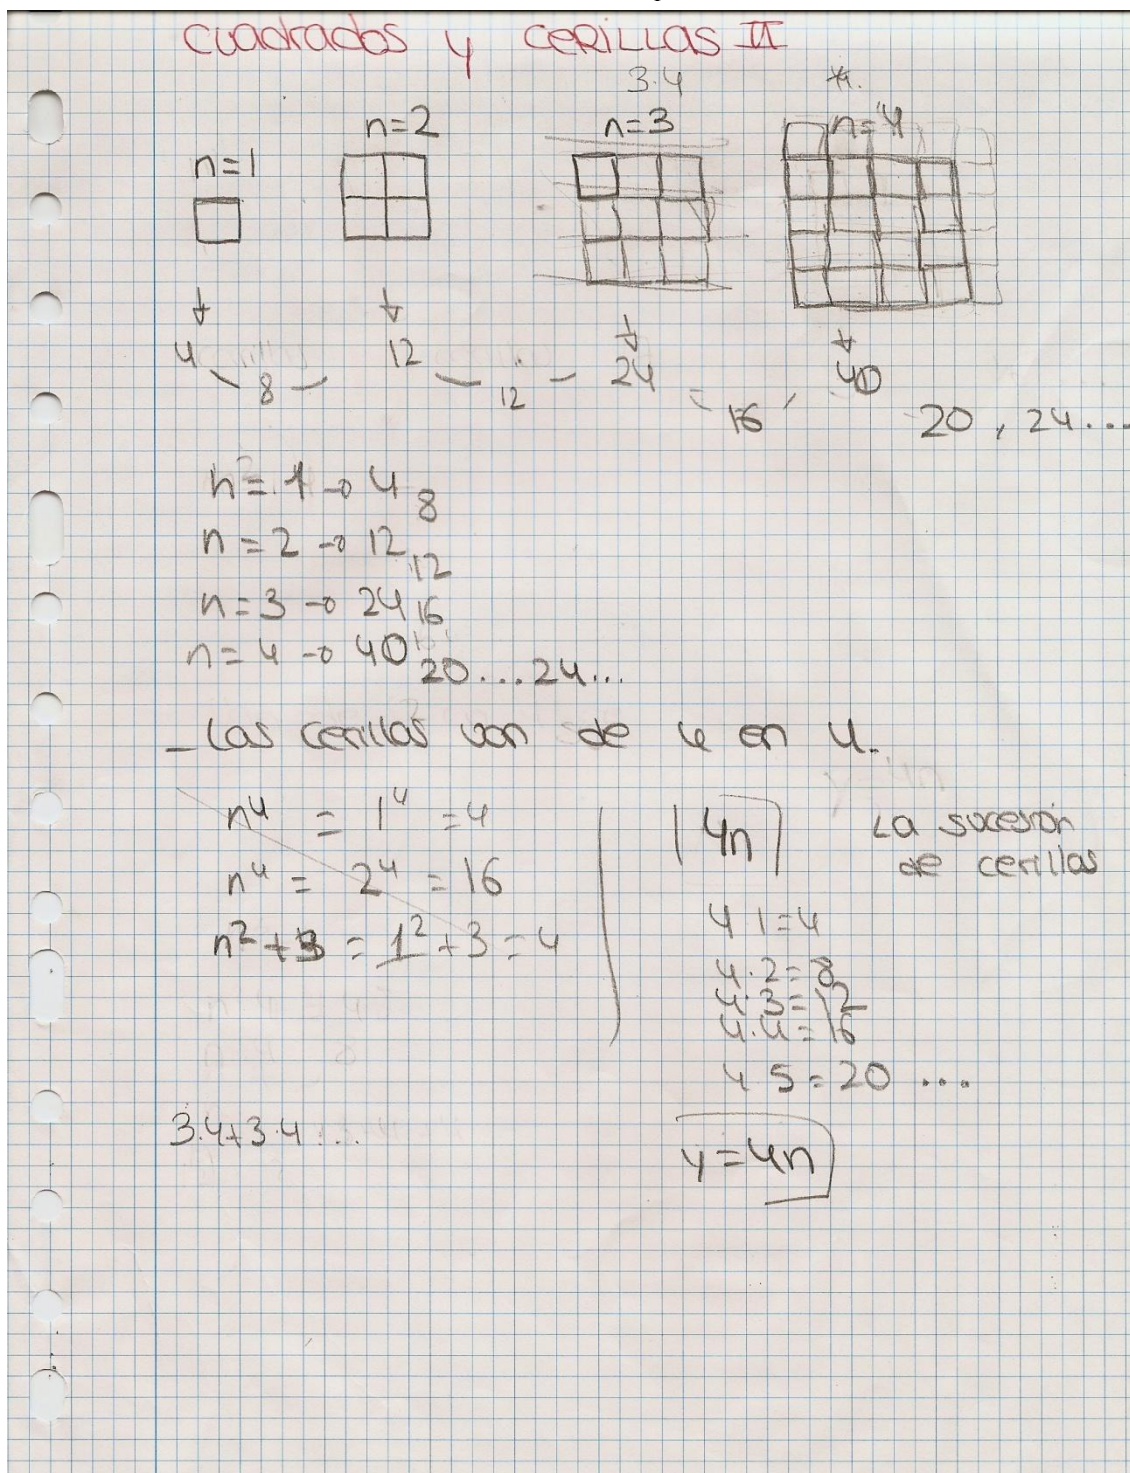 CUADRADOS Y CERILLAS II
3.4
n=1
n=2
n=3
n=4
4 8 12 12 24 16 40 20, 24...
n=1 → 4 8
n=2 → 12 12
n=3 → 24 16
n=4 → 40 20...24...
- Las cerillas van de 4 en 4.
n⁴ = 1⁴ = 4
n⁴ = 2⁴ = 16
n² + 3 = 1² + 3 = 4
4n
La sucesión
de cerillas
4 1=4
4·2=8
4·3=12
4·4=16
4 5=20 ...
3·4+3·4...
y=4n